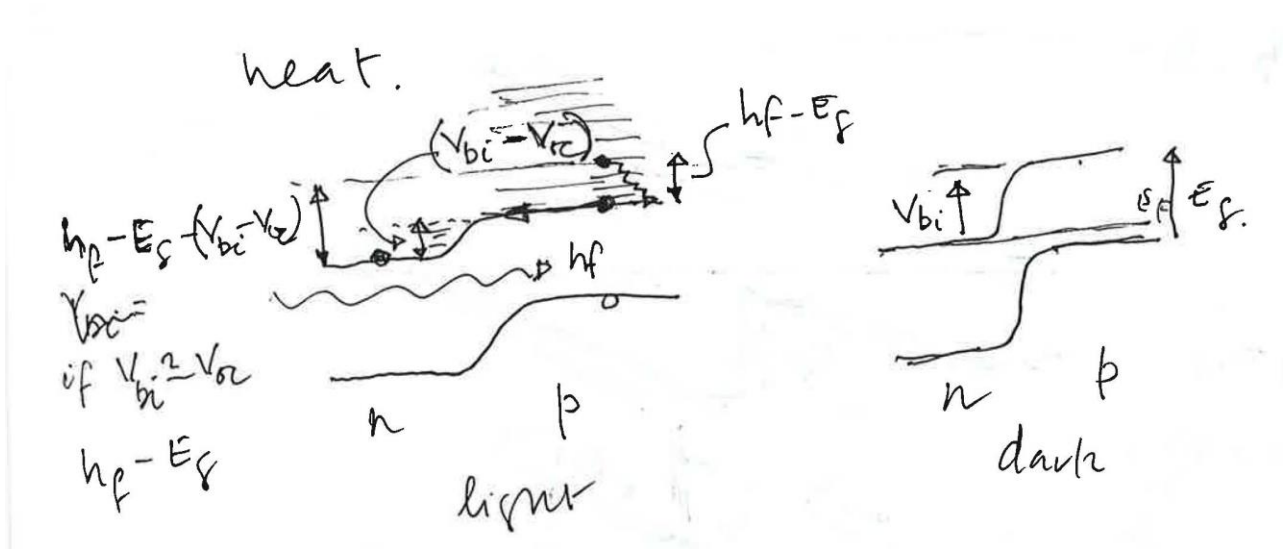 heat.
(Vbi - Voc)
hf - Eg
hf - Eg - (Vbi - Voc)
hf
if Vbi ≃ Voc
hf - Eg
n
p
light
Vbi
EF
Eg.
n
p
dark